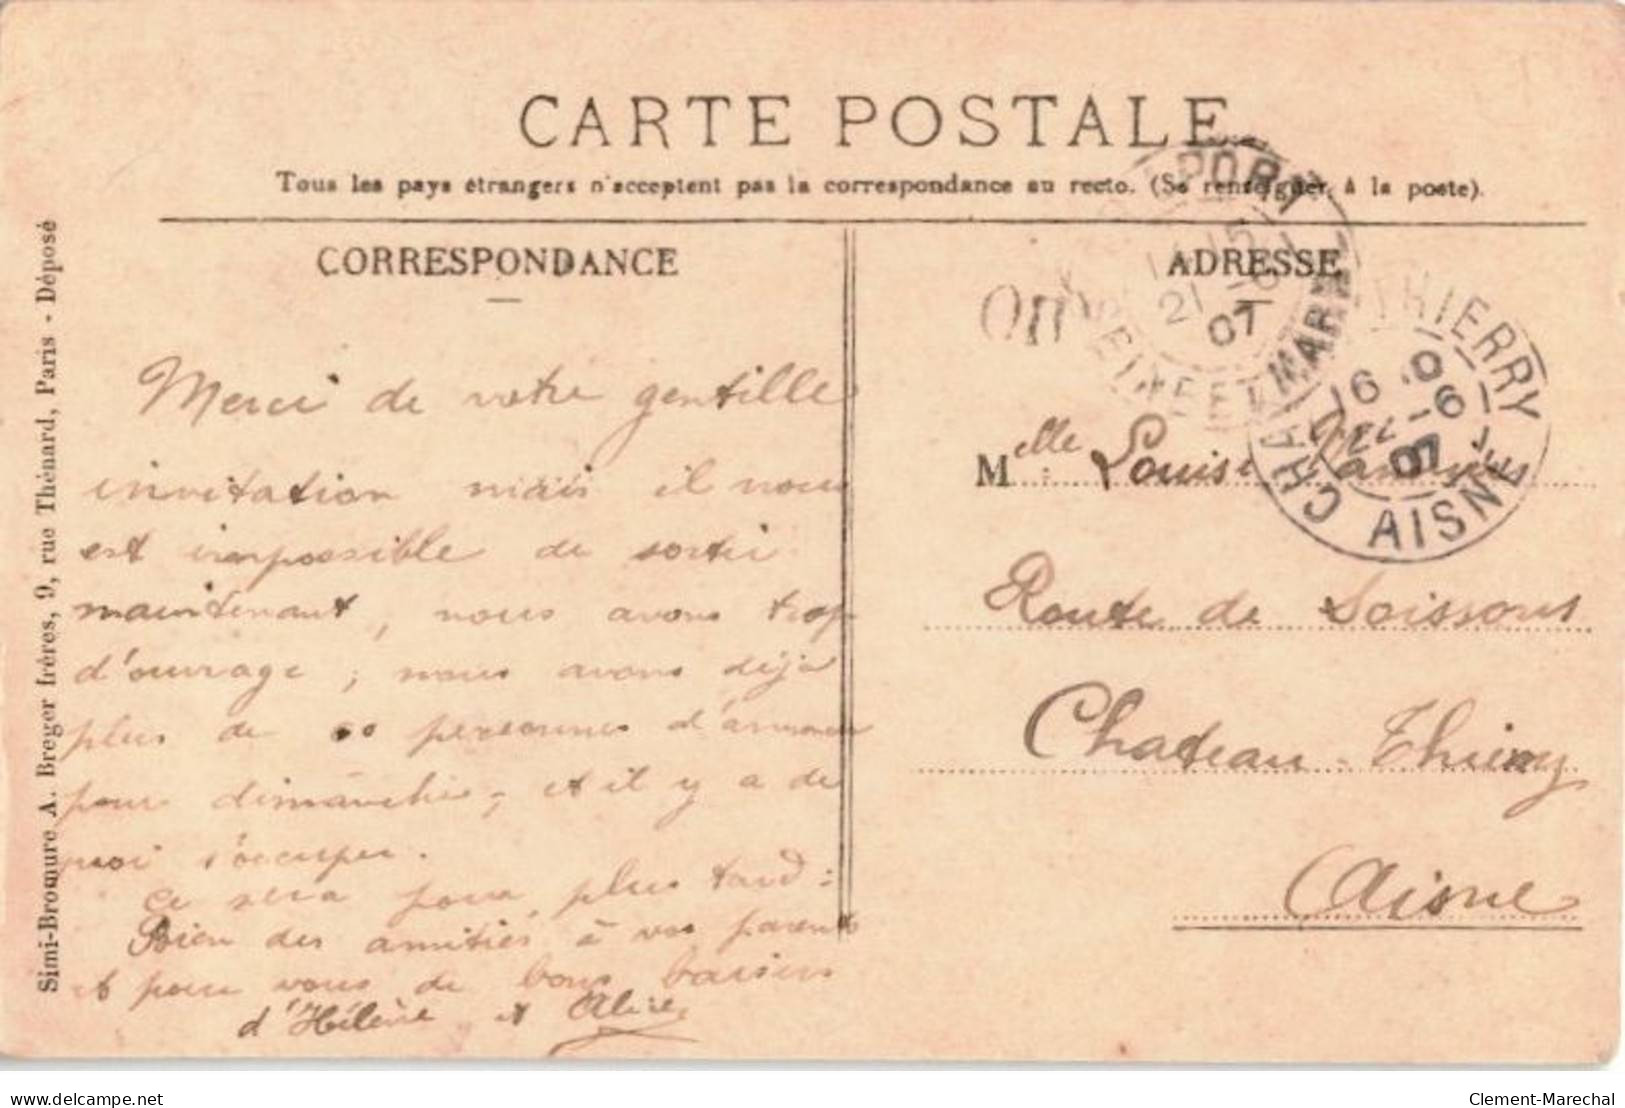 CARTE POSTALE
Tous les pays étrangers n'acceptent pas la correspondance au recto. (Se renseigner à la poste).
CORRESPONDANCE
Merci de votre gentille
invitation mais il nous
est impossible de sortir
maintenant, nous avons trop
d'ouvrage ; nous avons déjà
plus de personnes d'
pour dimanche, et il y a de
quoi s'occuper.
Ce sera pour plus tard :
Bien des amitiés à vos parents
et pour vous de bons baisers
d'Hélène et Alice
ADRESSE
Melle Louise
Route de Soissons
Chateau-Thierry
Aisne
21 -6
07
SEINE ET MARNE
CHAU THIERRY
22 -6
07
AISNE
Simi-Bromure A. Breger frères, 9, rue Thénard, Paris - Déposé
www.delcampe.net
Clement-Marechal